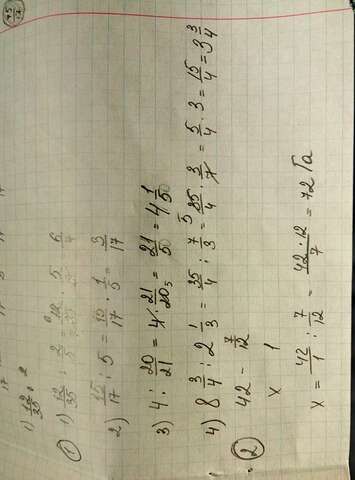 ① 1) 12/35 : 2/5 = 12/35 · 5/2 = 6/7
2) 15/17 : 5 = 15/17 · 1/5 = 3/17
3) 4 : 20/21 = 4·21/20 5 = 21/50 = 4 1/50
4) 8 3/4 : 2 1/3 = 35/4 : 7/3 = 5 35/4 · 3/7 = 5/4 · 3 = 15/4 = 3 3/4
② 42 - 7/12
x 1
x = 42/1 : 7/12 = 42·12/7 = 72 га